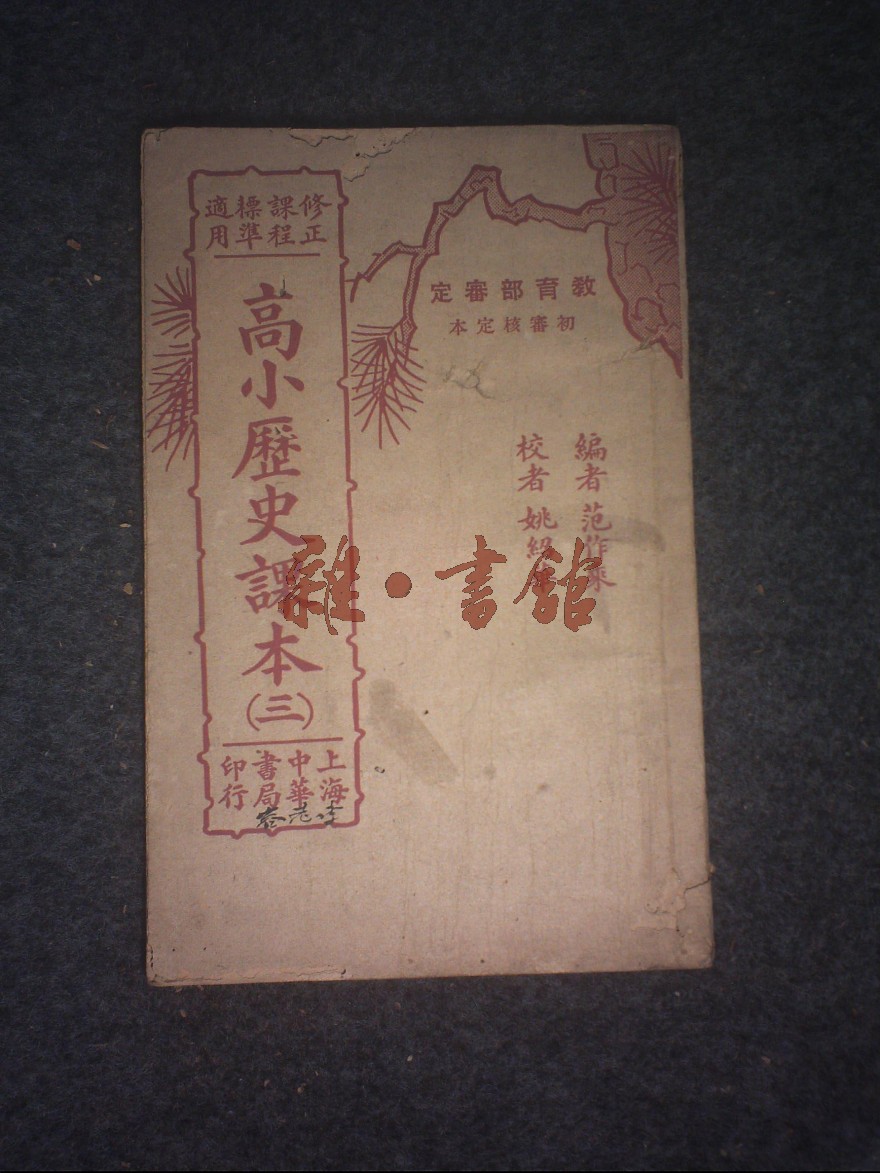 教育部審定
初審核定本
編者 范作乘
校者 姚紹
修正課程標準適用
高小歷史課本
(三)
上海中華書局印行
雜·書館